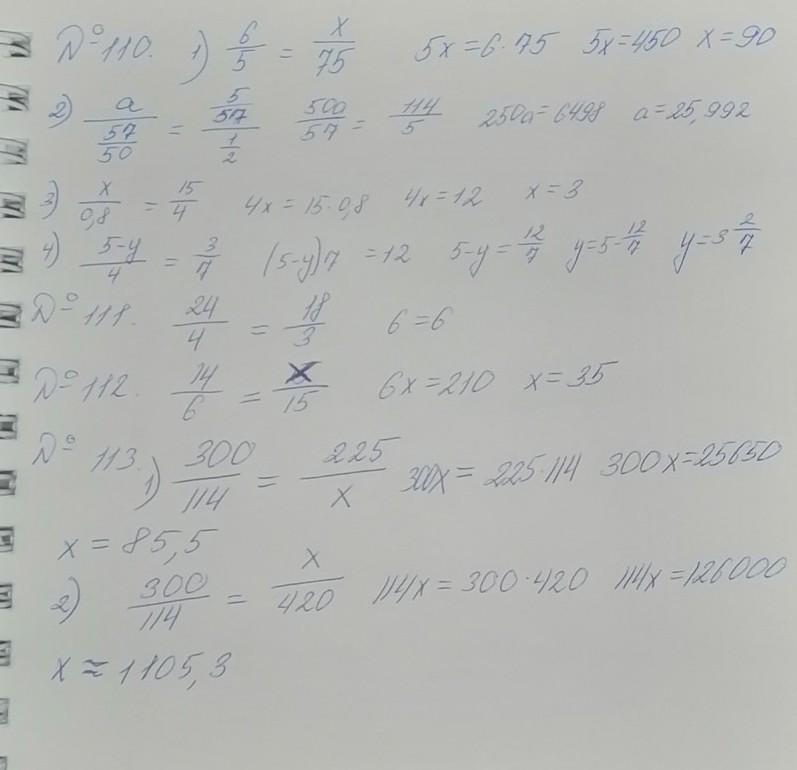 №110. 1) 6/5 = x/75 5x=6·75 5x=450 x=90
2) a/(57/50) = (5/57)/(1/2) 50a/57 = 114/5 250a=6498 a=25,992
3) x/0,8 = 15/4 4x=15·0,8 4x=12 x=3
4) 5-y/4 = 3/7 (5-y)7=12 5-y=12/7 y=5-12/7 y=3 2/7
№111. 24/4 = 18/3 6=6
№112. 14/6 = x/15 6x=210 x=35
№113. 1) 300/114 = 225/x 300x=225·114 300x=25650
x=85,5
2) 300/114 = x/420 114x=300·420 114x=126000
x≈1105,3